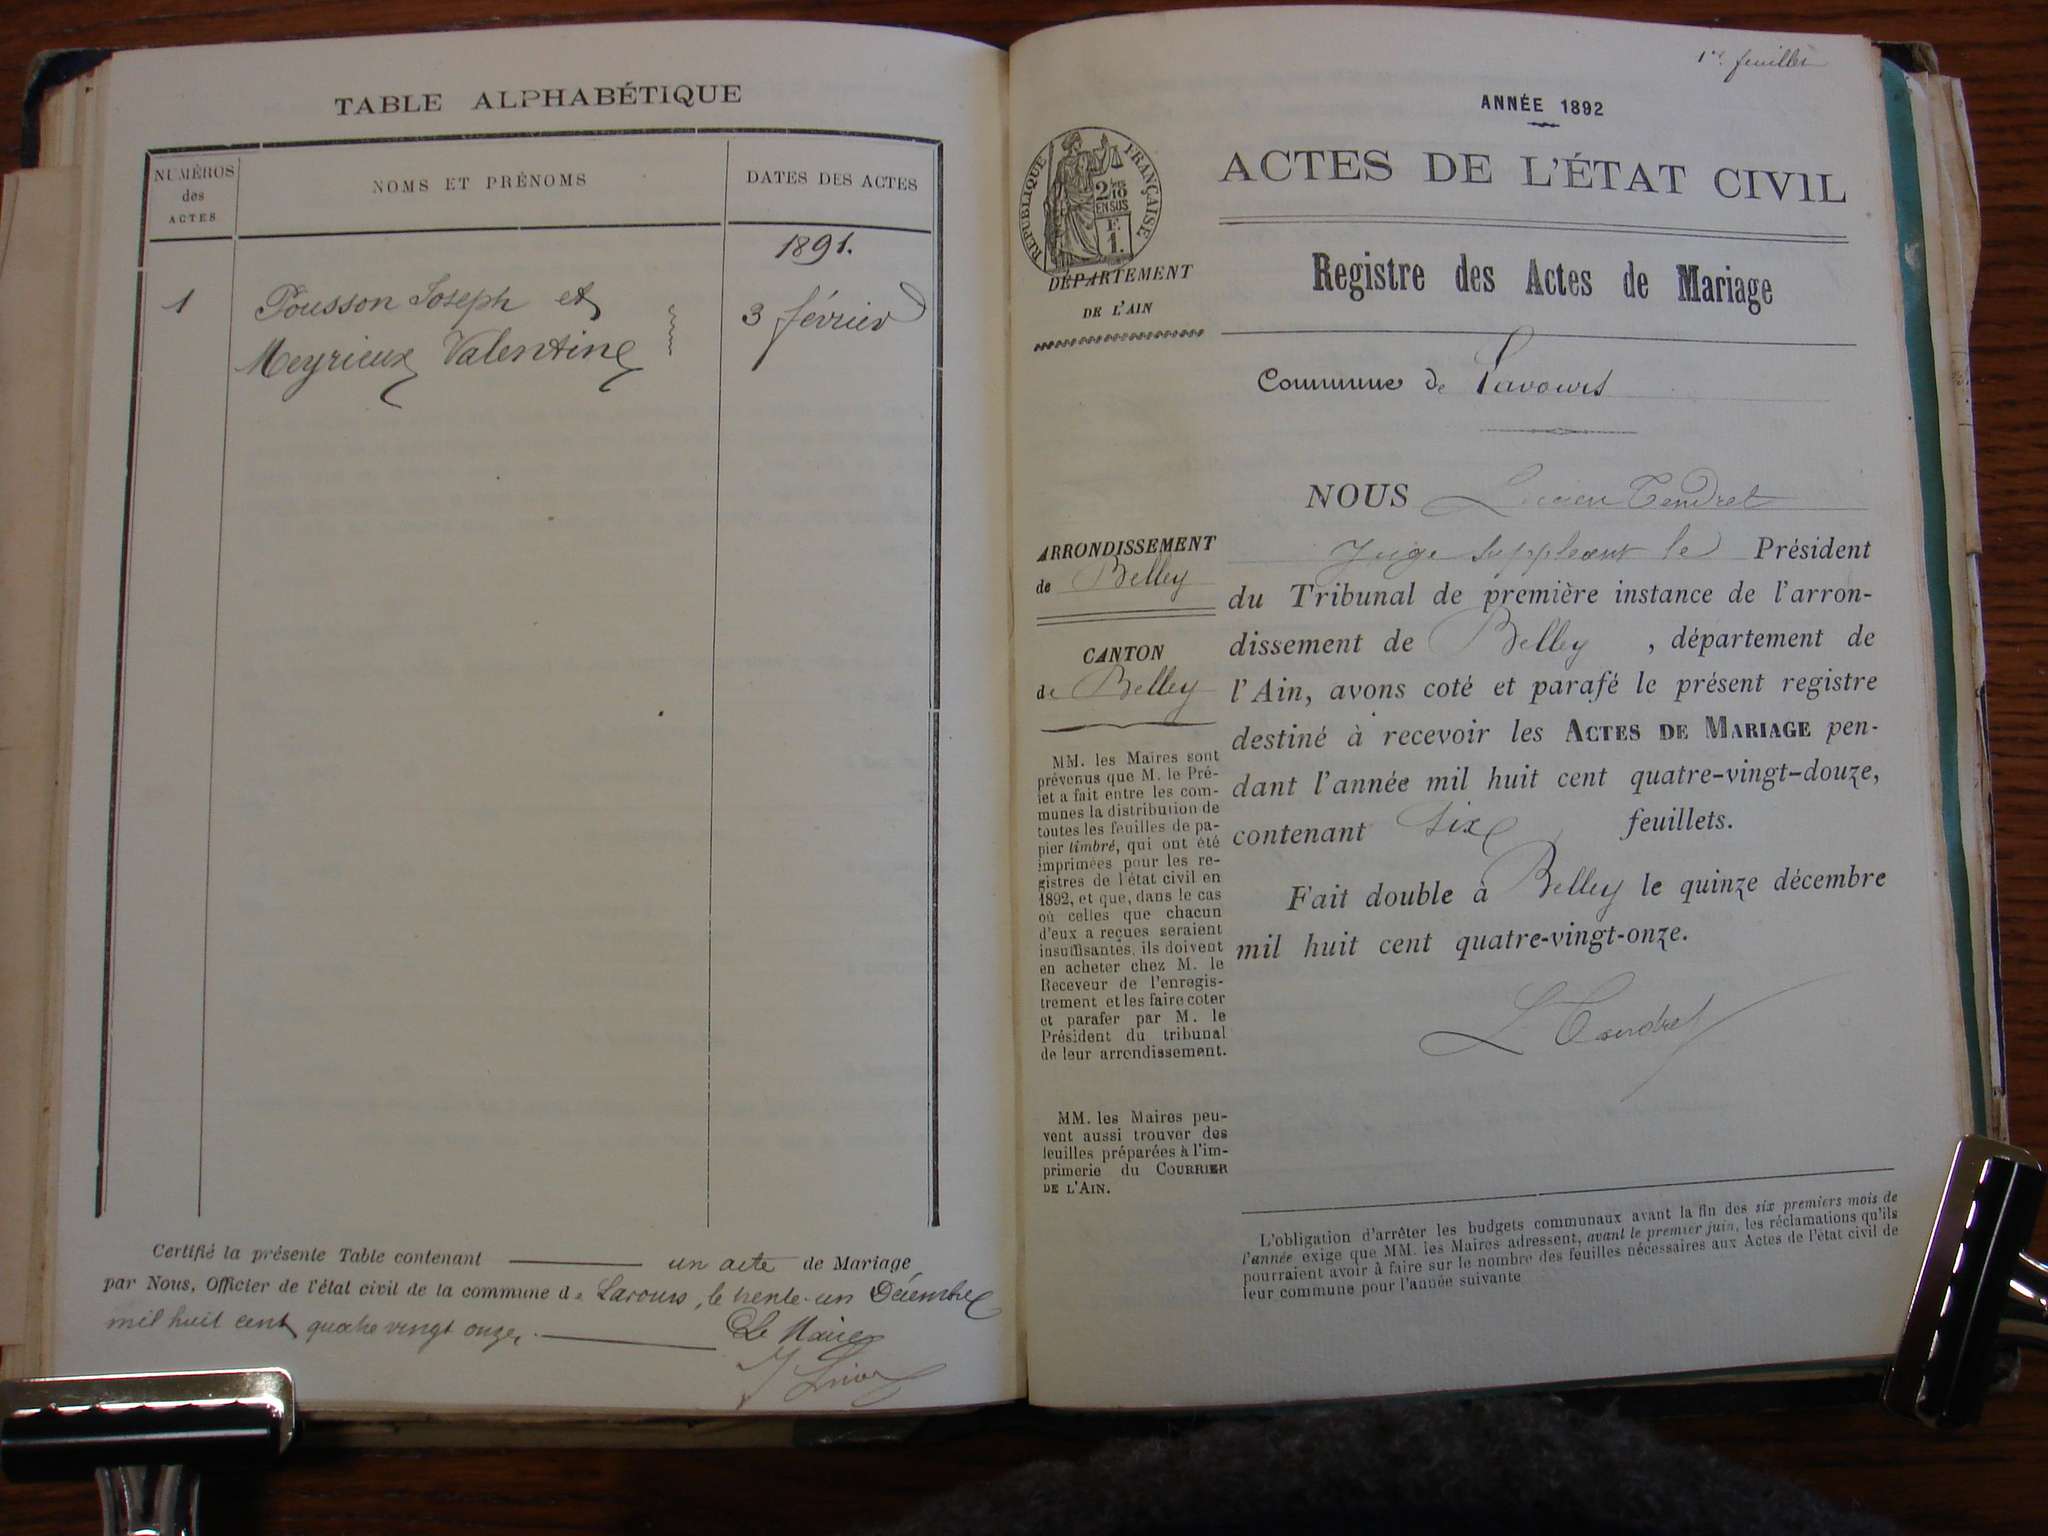 TABLE ALPHABÉTIQUE
NUMÉROS
des
ACTES
NOMS ET PRÉNOMS
DATES DES ACTES
1891.
1 Pousson Joseph et 3 février
Meyrieux Valentine
Certifié la présente Table contenant un acte de Mariage
par Nous, Officier de l'état civil de la commune de Lavours, le trente-un Décembre
mil huit cent quatre vingt onze.
Le Maire
1er feuillet
ANNÉE 1892
RÉPUBLIQUE FRANÇAISE
2/10
EN SUS
F.
1.
DÉPARTEMENT
DE L'AIN
ACTES DE L'ÉTAT CIVIL
Registre des Actes de Mariage
Commune de Lavours
ARRONDISSEMENT
de Belley
CANTON
de Belley
MM. les Maires sont
prévenus que M. le Pré-
fet a fait entre les com-
munes la distribution de
toutes les feuilles de pa-
pier timbré, qui ont été
imprimées pour les re-
gistres de l'état civil en
1892, et que, dans le cas
où celles que chacun
d'eux a reçues seraient
insuffisantes, ils doivent
en acheter chez M. le
Receveur de l'enregis-
trement et les faire coter
et parafer par M. le
Président du tribunal
de leur arrondissement.
MM. les Maires peu-
vent aussi trouver des
feuilles préparées à l'im-
primerie du COURRIER
DE L'AIN.
NOUS Lucien Tendret
Juge suppléant le Président
du Tribunal de première instance de l'arron-
dissement de Belley, département de
l'Ain, avons coté et parafé le présent registre
destiné à recevoir les ACTES DE MARIAGE pen-
dant l'année mil huit cent quatre-vingt-douze,
contenant six feuillets.
Fait double à Belley le quinze décembre
mil huit cent quatre-vingt-onze.
L Tendret
L'obligation d'arrêter les budgets communaux avant la fin des six premiers mois de
l'année exige que MM. les Maires adressent, avant le premier juin, les réclamations qu'ils
pourraient avoir à faire sur le nombre des feuilles nécessaires aux Actes de l'état civil de
leur commune pour l'année suivante